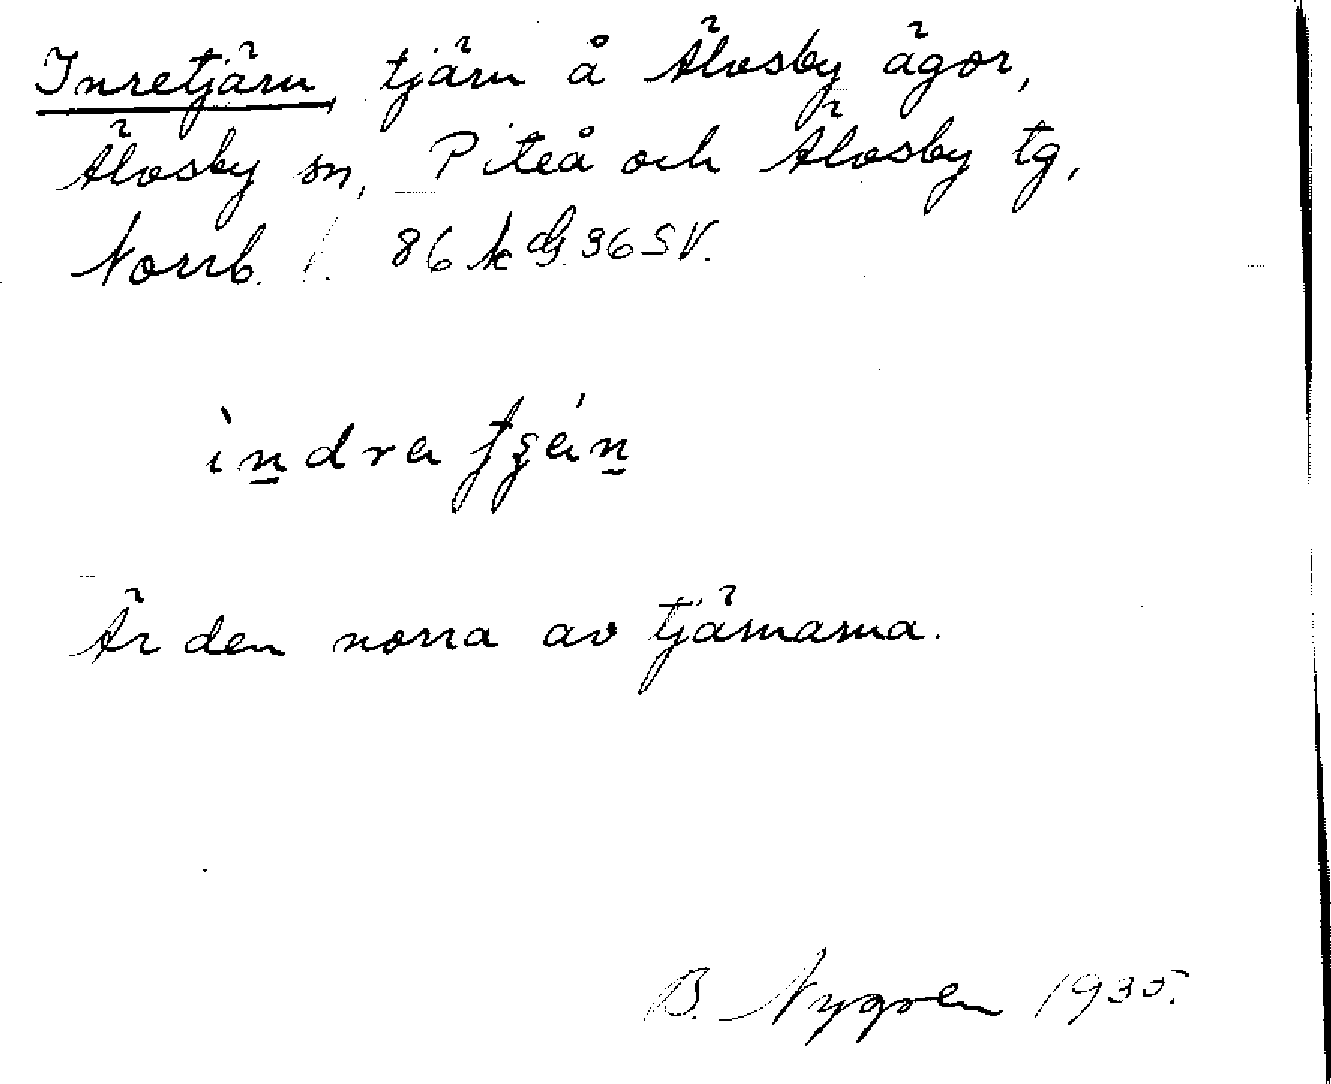 Inretjärn, tjärn å Älvsby ägor,
Älvsby sn, Piteå och Älvsby tg,
Norrb. l. 36 SV.
Är den norra av tjärnarna.
B. Nygren 1935.